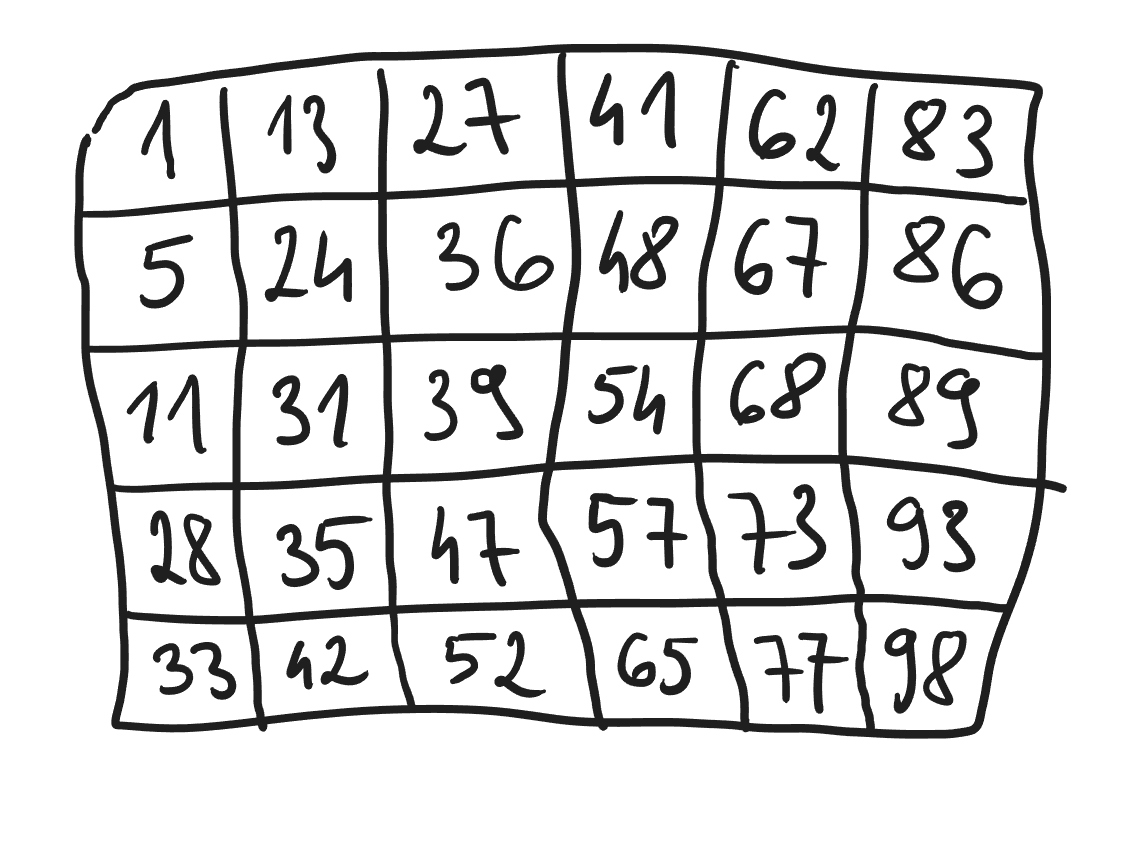 1 13 27 41 62 83
5 24 36 48 67 86
11 31 39 54 68 89
28 35 47 57 73 93
33 42 52 65 77 98